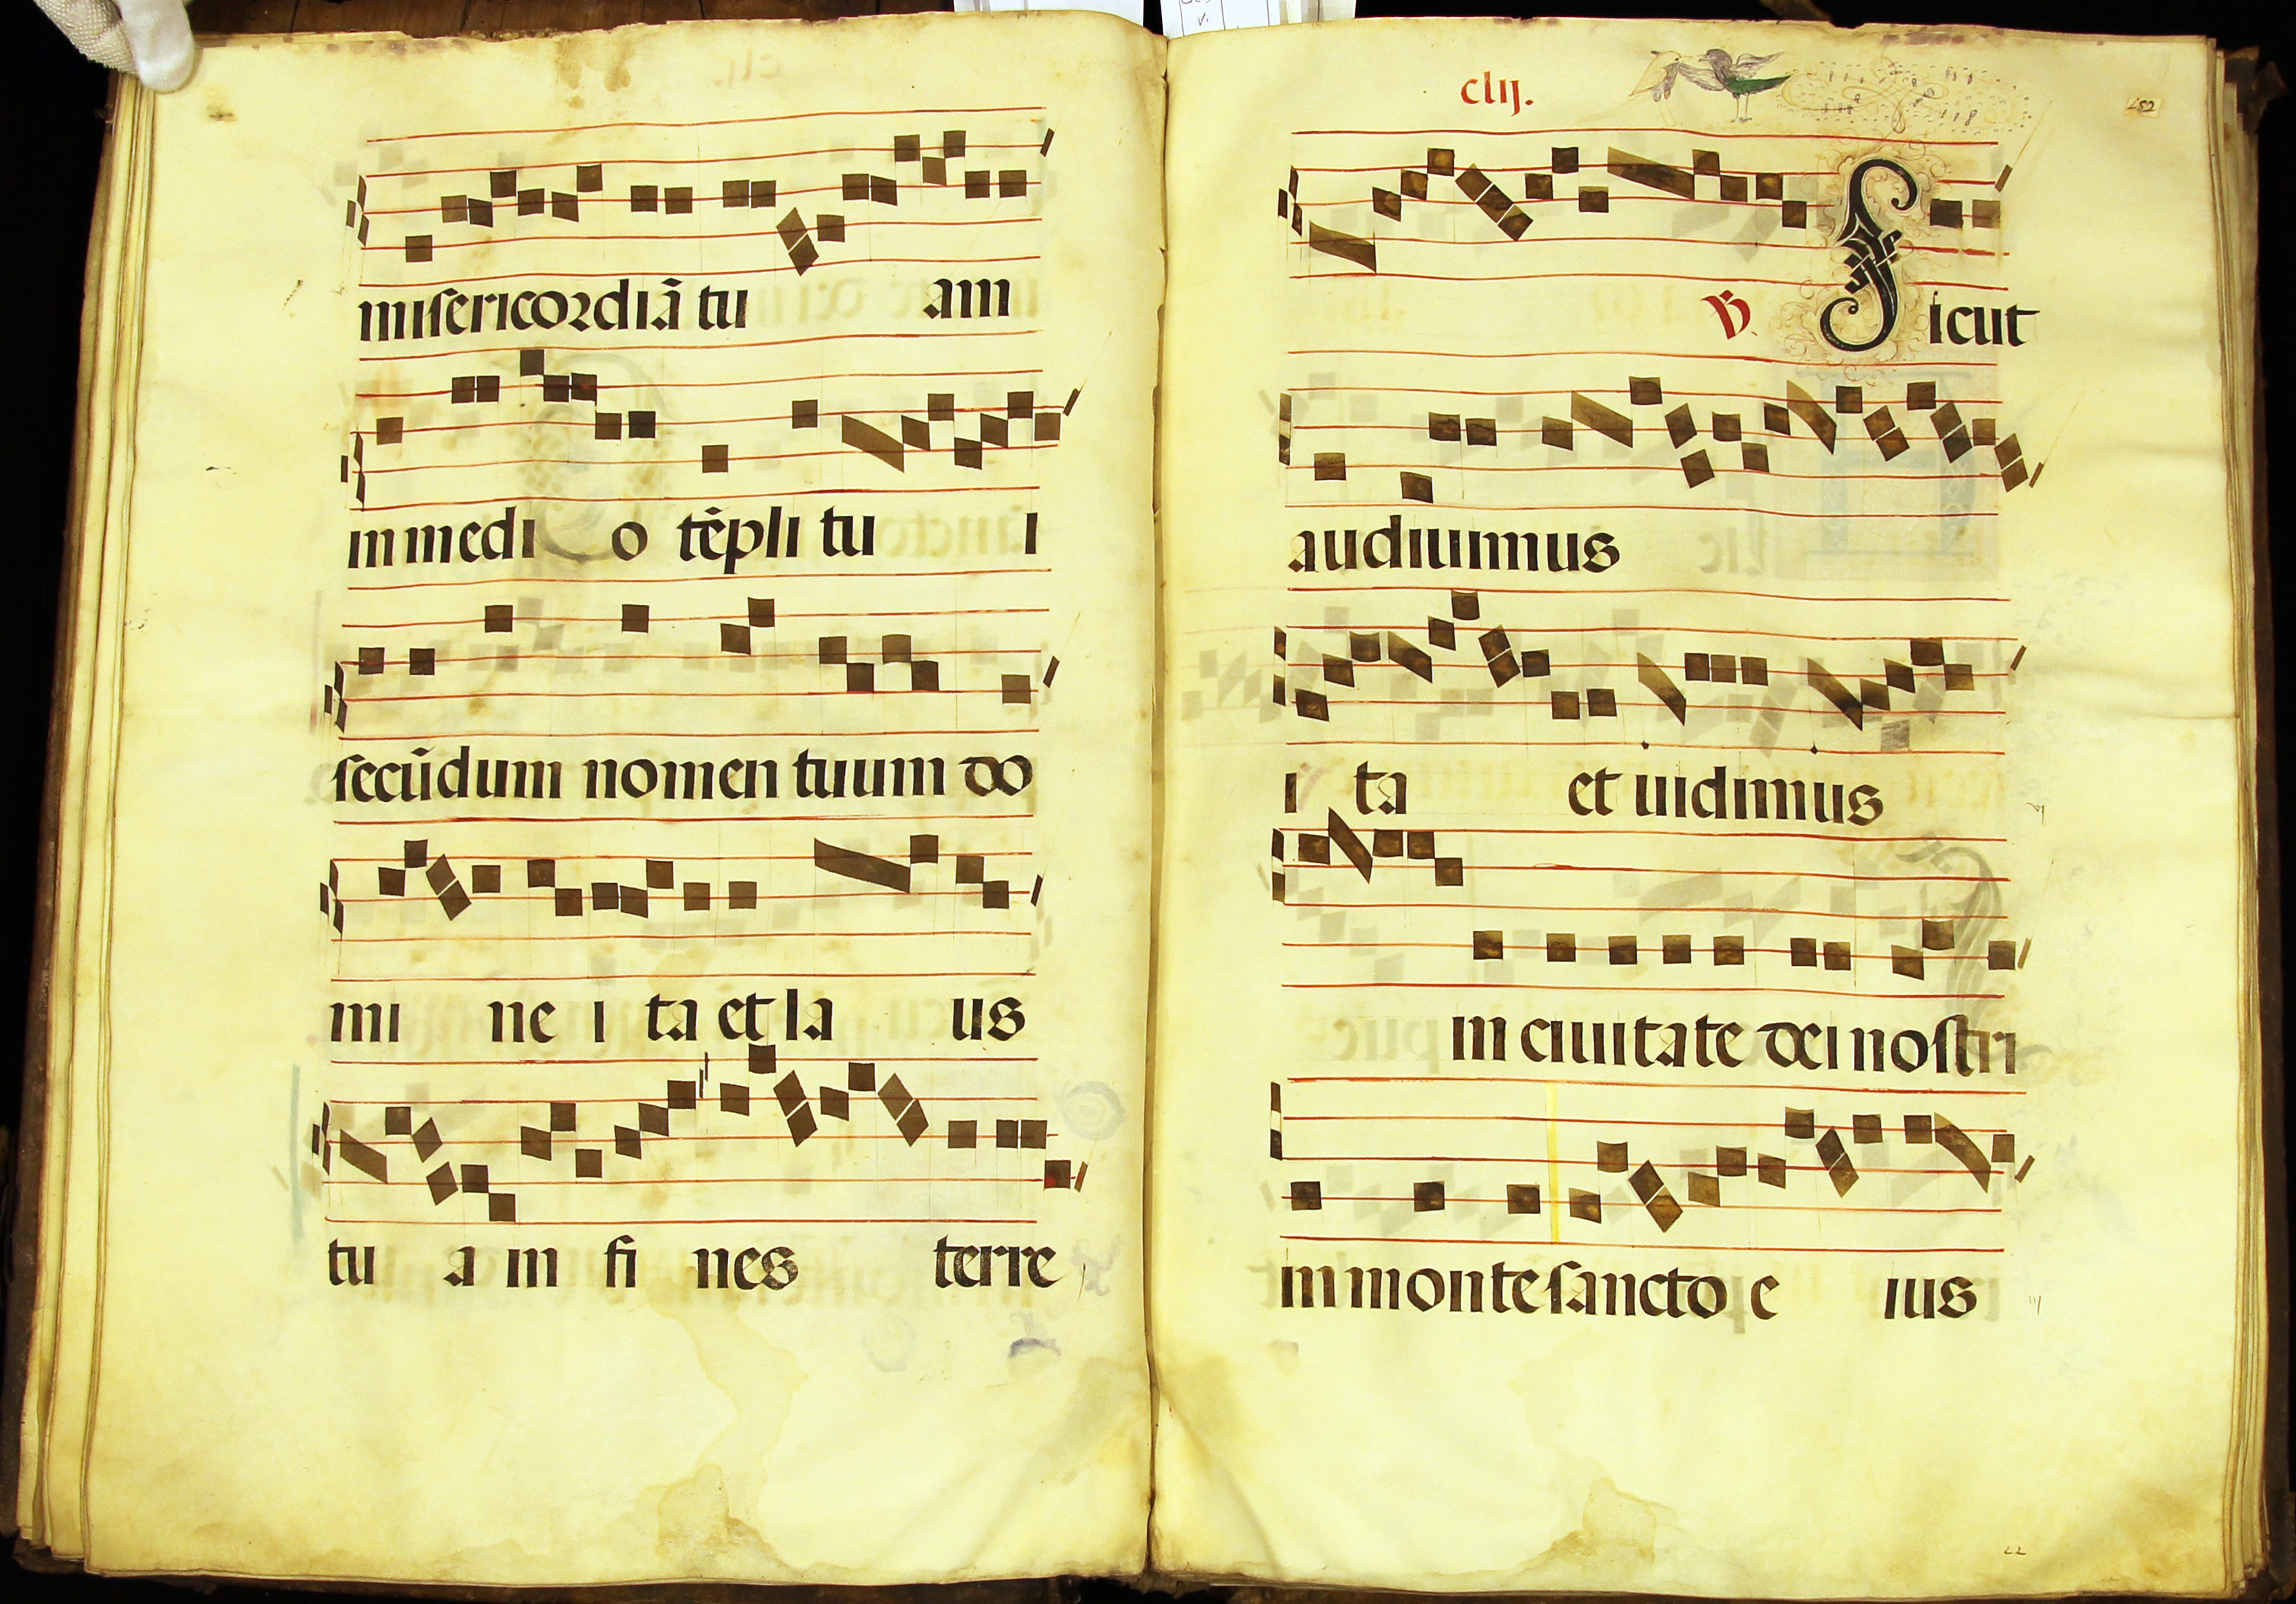 misericordiã tu am
in medi o tẽpli tu i
secũdum nomen tuum do
mi ne i ta et la us
tu a in fi nes terre
clij.
152
℣. Sicut
audiuimus
i ta et uidimus
in ciuitate dei nostri
in monte sancto e ius